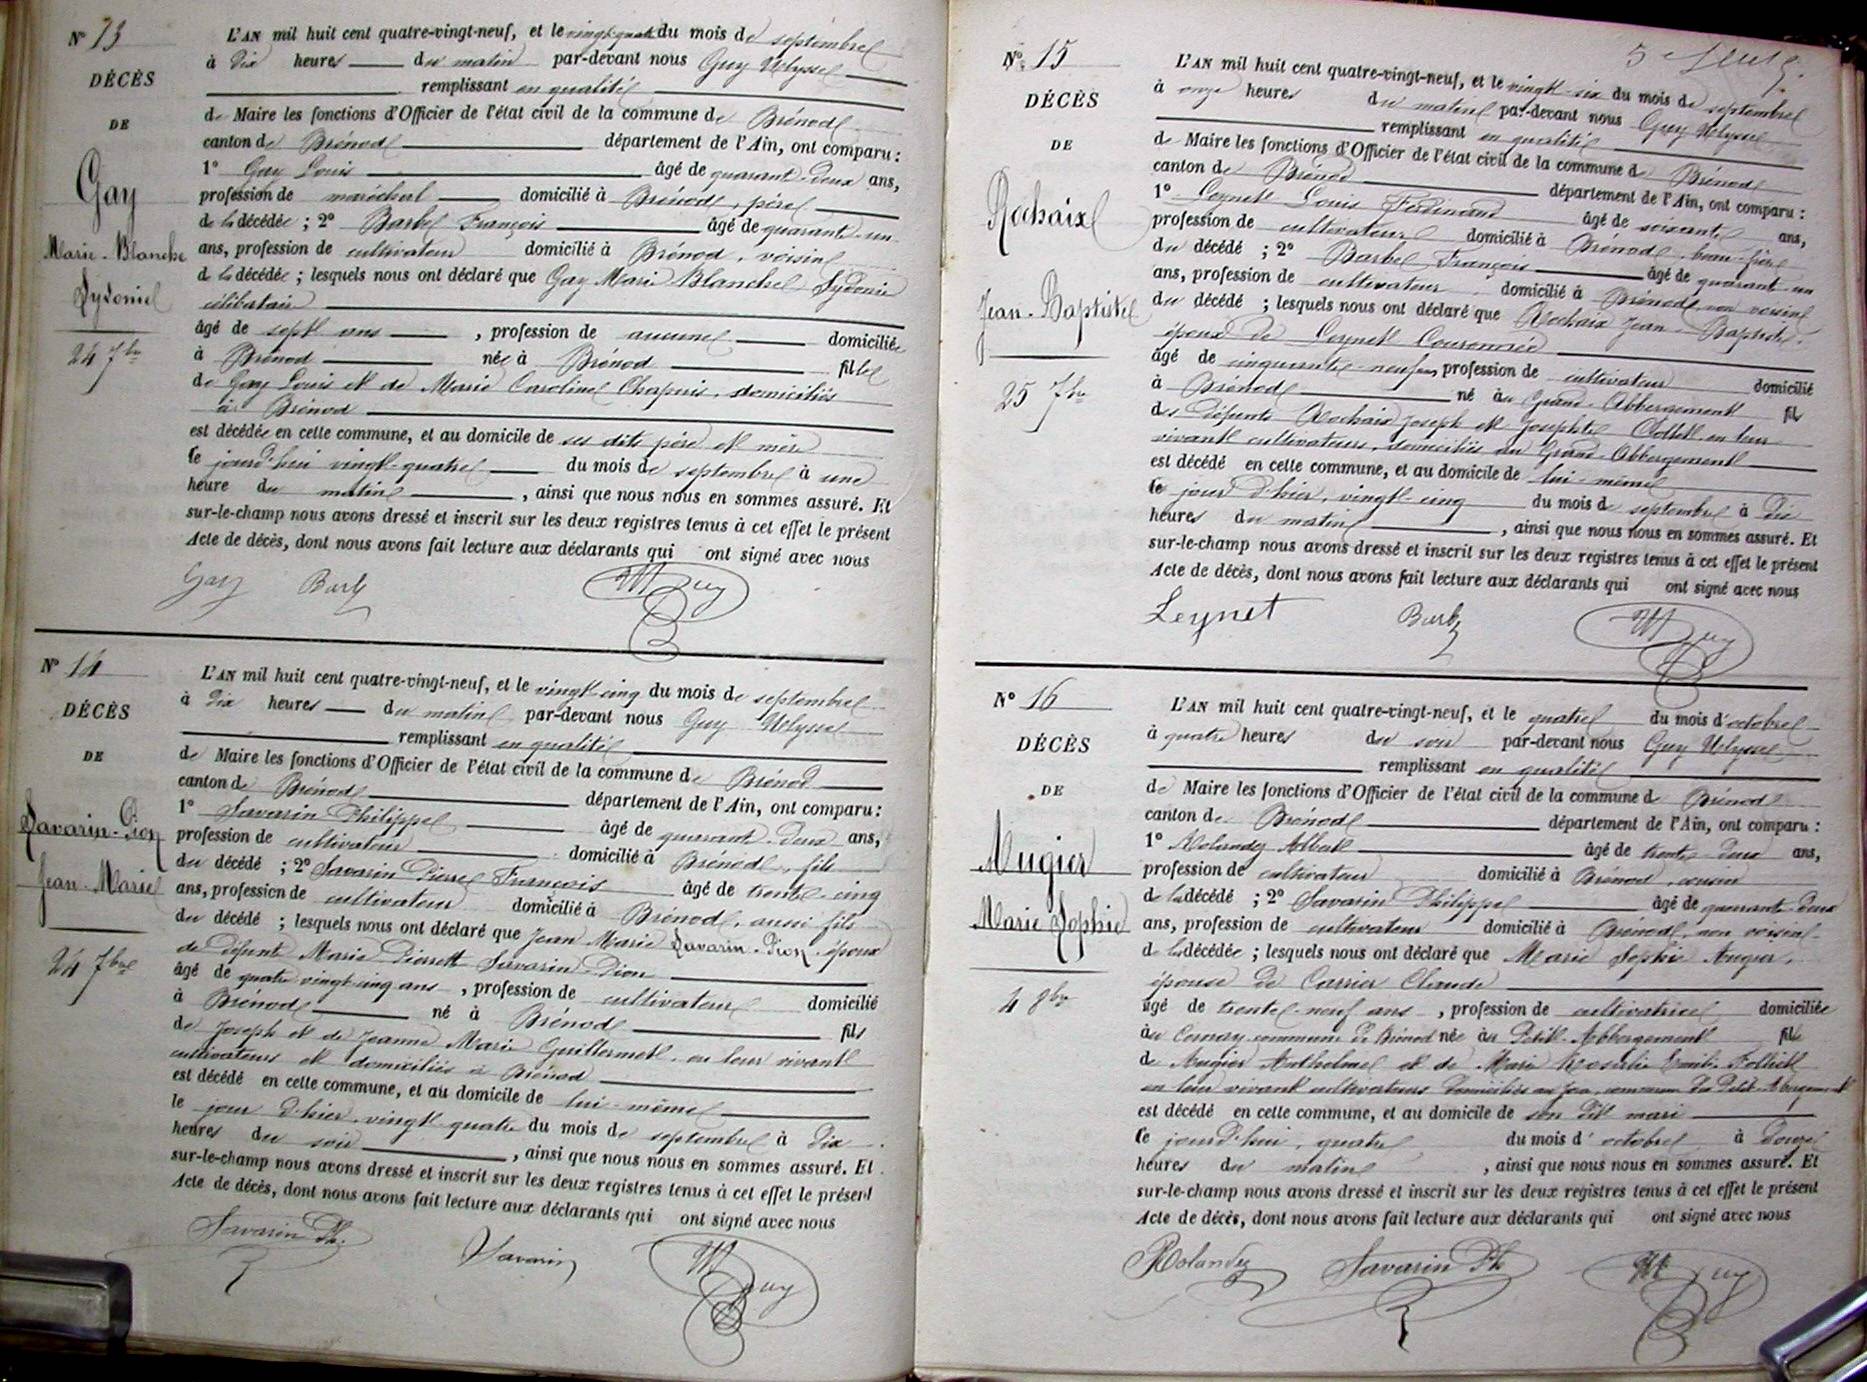 N° 13
DÉCÈS
DE
Gay
Marie-Blanche
Sydonie
24 7bre
L'AN mil huit cent quatre-vingt-neuf, et le vingt-quatre du mois de septembre
à dix heures du matin par-devant nous Guy Ulysse
remplissant en qualité
de Maire les fonctions d'Officier de l'état civil de la commune de Brénod
canton de Brénod département de l'Ain, ont comparu :
1° Gay Louis âgé de quarante-deux ans,
profession de maréchal domicilié à Brénod, père
de la décédée ; 2° Barbe François âgé de quarante-un
ans, profession de cultivateur domicilié à Brénod, voisin
de la décédée ; lesquels nous ont déclaré que Gay Marie Blanche Sydonie
célibataire
âgé de sept ans , profession de aucune domiciliée
à Brénod née à Brénod fille
de Gay Louis et de Marie Caroline Chapuis, domiciliés
à Brénod
est décédée en cette commune, et au domicile de ses dits père et mère
ce jourd'hui vingt-quatre du mois de septembre à une
heure du matin , ainsi que nous nous en sommes assuré. Et
sur-le-champ nous avons dressé et inscrit sur les deux registres tenus à cet effet le présent
Acte de décès, dont nous avons fait lecture aux déclarants qui ont signé avec nous
Gay Barbe Guy
N° 14
DÉCÈS
DE
Savarin-Pion
Jean-Marie
24 7bre
L'AN mil huit cent quatre-vingt-neuf, et le vingt-cinq du mois de septembre
à dix heures du matin par-devant nous Guy Ulysse
remplissant en qualité
de Maire les fonctions d'Officier de l'état civil de la commune de Brénod
canton de Brénod département de l'Ain, ont comparu :
1° Savarin Philippe âgé de quarante-deux ans,
profession de cultivateur domicilié à Brénod, fils
du décédé ; 2° Savarin Pierre François âgé de trente-cinq
ans, profession de cultivateur domicilié à Brénod, aussi fils
du décédé ; lesquels nous ont déclaré que Jean Marie Savarin-Pion, époux
de défunte Marie Pierrett Savarin-Pion
âgé de quatre vingt cinq ans , profession de cultivateur domicilié
à Brénod né à Brénod fils
de Joseph et de Jeanne Marie Guillermet en leur vivant
cultivateurs et domiciliés à Brénod
est décédé en cette commune, et au domicile de lui-même
le jour d'hier, vingt-quatre du mois de septembre à dix
heures du soir , ainsi que nous nous en sommes assuré. Et
sur-le-champ nous avons dressé et inscrit sur les deux registres tenus à cet effet le présent
Acte de décès, dont nous avons fait lecture aux déclarants qui ont signé avec nous
Savarin Ph. Savarin Guy
N° 15
DÉCÈS
DE
Rochaix
Jean-Baptiste
25 7bre
L'AN mil huit cent quatre-vingt-neuf, et le vingt-six du mois de septembre
à onze heures du matin par-devant nous Guy Ulysse
remplissant en qualité
de Maire les fonctions d'Officier de l'état civil de la commune de Brénod
canton de Brénod département de l'Ain, ont comparu :
1° Leynet Louis Ferdinand âgé de soixante ans,
profession de cultivateur domicilié à Brénod, beau-frère
du décédé ; 2° Barbe François âgé de quarante-un
ans, profession de cultivateur domicilié à Brénod, non voisin
du décédé ; lesquels nous ont déclaré que Rochaix Jean-Baptiste,
époux de Leynet Couronnée
âgé de cinquante-neuf ans, profession de cultivateur domicilié
à Brénod né à au Grand-Abbergement fils
des défunts Rochaix Joseph et Josephte Collet en leur
vivant cultivateurs, domiciliés au Grand-Abbergement
est décédé en cette commune, et au domicile de lui-même
le jour d'hier, vingt-cinq du mois de septembre à dix
heures du matin , ainsi que nous nous en sommes assuré. Et
sur-le-champ nous avons dressé et inscrit sur les deux registres tenus à cet effet le présent
Acte de décès, dont nous avons fait lecture aux déclarants qui ont signé avec nous
Leynet Barbe Guy
N° 16
DÉCÈS
DE
Augier
Marie Sophie
4 8bre
L'AN mil huit cent quatre-vingt-neuf, et le quatre du mois d'octobre
à quatre heures du soir par-devant nous Guy Ulysse
remplissant en qualité
de Maire les fonctions d'Officier de l'état civil de la commune de Brénod
canton de Brénod département de l'Ain, ont comparu :
1° Rolandez Albert âgé de trente-deux ans,
profession de cultivateur domicilié à Brénod, cousin
de la décédé ; 2° Savarin Philippe âgé de quarante-deux
ans, profession de cultivateur domicilié à Brénod, non voisin
de la décédée ; lesquels nous ont déclaré que Marie Sophie Augier,
épouse de Carrier Claude
âgé de trente-neuf ans , profession de cultivatrice domiciliée
à commune de Brénod née à au Petit-Abbergement fille
de Augier Anthelme et de Marie Rosalie Emilie Folliet
en leur vivant cultivateurs domiciliés au commune du Petit-Abergement
est décédé en cette commune, et au domicile de son dit mari
ce jourd'hui, quatre du mois d'octobre à douze
heures du matin , ainsi que nous nous en sommes assuré. Et
sur-le-champ nous avons dressé et inscrit sur les deux registres tenus à cet effet le présent
Acte de décès, dont nous avons fait lecture aux déclarants qui ont signé avec nous
Rolandez Savarin Ph Guy